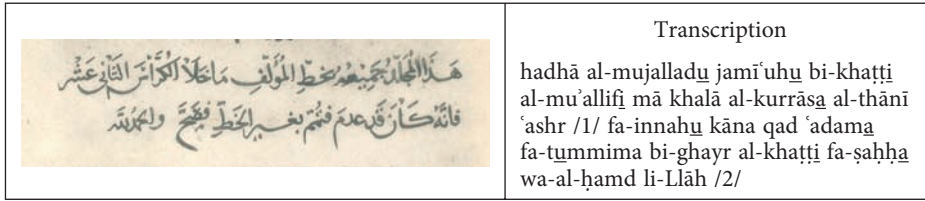 هَذَا المُجَلَّدُ جَمِيْعُهُ بخطِّ المُؤَلّفِ مَا خَلَا الْكُرَّاسَ الثَّانى عَشَر
فانَّهُ كَانَ قَد عدمَ فتُمّمَ بغير الخَطِّ فصَحَّ والحمد لله
Transcription
hadhā al-mujalladu jamīʿuhu bi-khaṭṭi
al-muʾallifi mā khalā al-kurrāsa al-thānī
ʿashr /1/ fa-innahu kāna qad ʿadama
fa-tummima bi-ghayr al-khaṭṭi fa-ṣaḥḥa
wa-al-ḥamd li-Llāh /2/